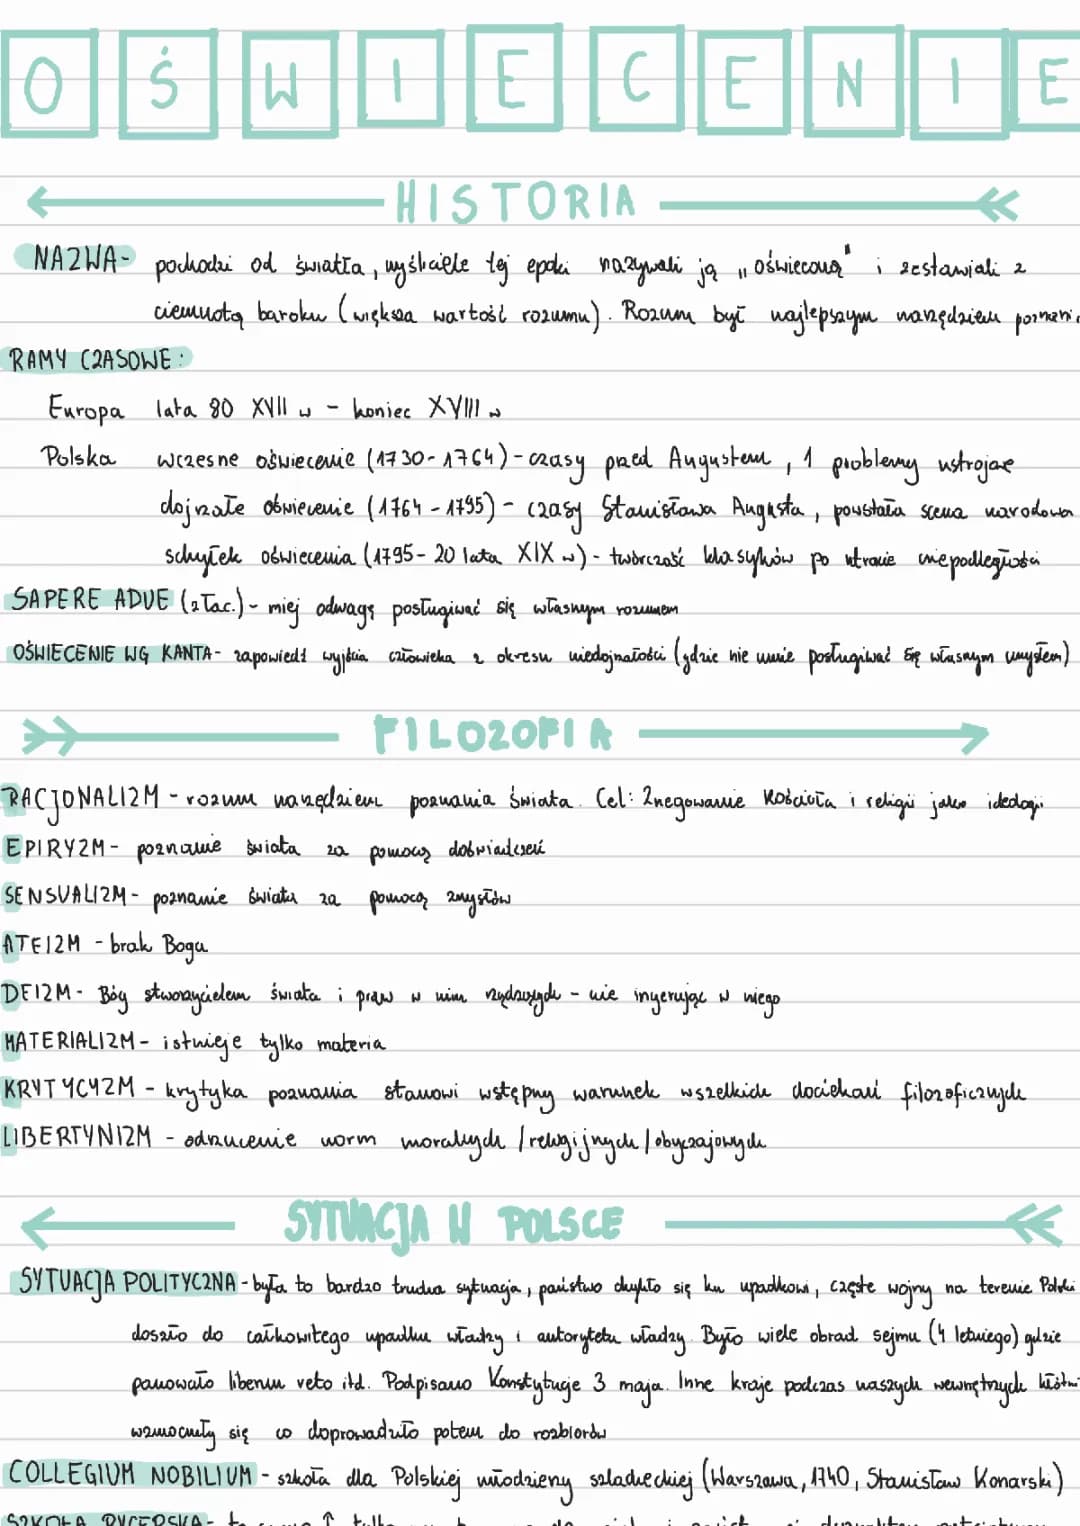 OŚWIECENIE
HISTORIA
NAZWA- pochodzi od światła, myśliciele tej epoki nazywali ją "oświeconą" i zestawiali z
ciemnotą baroku (większa wartość rozumu). Rozum był najlepszym narzędziem poznania
RAMY CZASOWE:
Europa lata 80 XVII w - koniec XVIII w
Polska wczesne oświecenie (1730-1764) - czasy przed Augustem, 1 problemy ustrojowe
dojrzałe oświecenie (1764-1795) - czasy Stanisława Augusta, powstała scena narodowa
schyłek oświecenia (1795-20 lata XIX w) - twórczość klasyków po utracie niepodległości
SAPERE ADUE (z łac.) - miej odwagę posługiwać się własnym rozumem
OŚWIECENIE WG KANTA- zapowiedź wyjścia człowieka z okresu niedojrzałości (gdzie nie umie posługiwać się własnym umysłem)
FILOZOFIA
RACJONALIZM - rozum narzędziem poznania świata. Cel: Znegowanie Kościoła i religii jako ideologii
EPIRYZM- poznanie świata za pomocą doświadczeń
SENSUALIZM- poznanie świata za pomocą zmysłów
ATEIZM - brak Boga
DEIZM- Bóg stworzycielem świata i praw w nim rządzących - nie ingerując w niego
MATERIALIZM- istnieje tylko materia
KRYTYCYZM - krytyka poznania stanowi wstępny warunek wszelkich dociekań filozoficznych
LIBERTYNIZM - odrzucenie norm moralnych / religijnych / obyczajowych
SYTUACJA W POLSCE
SYTUACJA POLITYCZNA - była to bardzo trudna sytuacja, państwo chyliło się ku upadkowi, częste wojny na terenie Polski
doszło do całkowitego upadku władzy i autorytetu władzy. Było wiele obrad sejmu (4 letniego) gdzie
panowało liberum veto itd. Podpisano Konstytucje 3 maja. Inne kraje podczas naszych wewnętrznych kłótni
wzmocniły się co doprowadziło potem do rozbiorów
COLLEGIUM NOBILIUM - szkoła dla Polskiej młodzieny szlacheckiej (Warszawa, 1740, Stanisław Konarski)
SZKOŁA RYCERSKA-